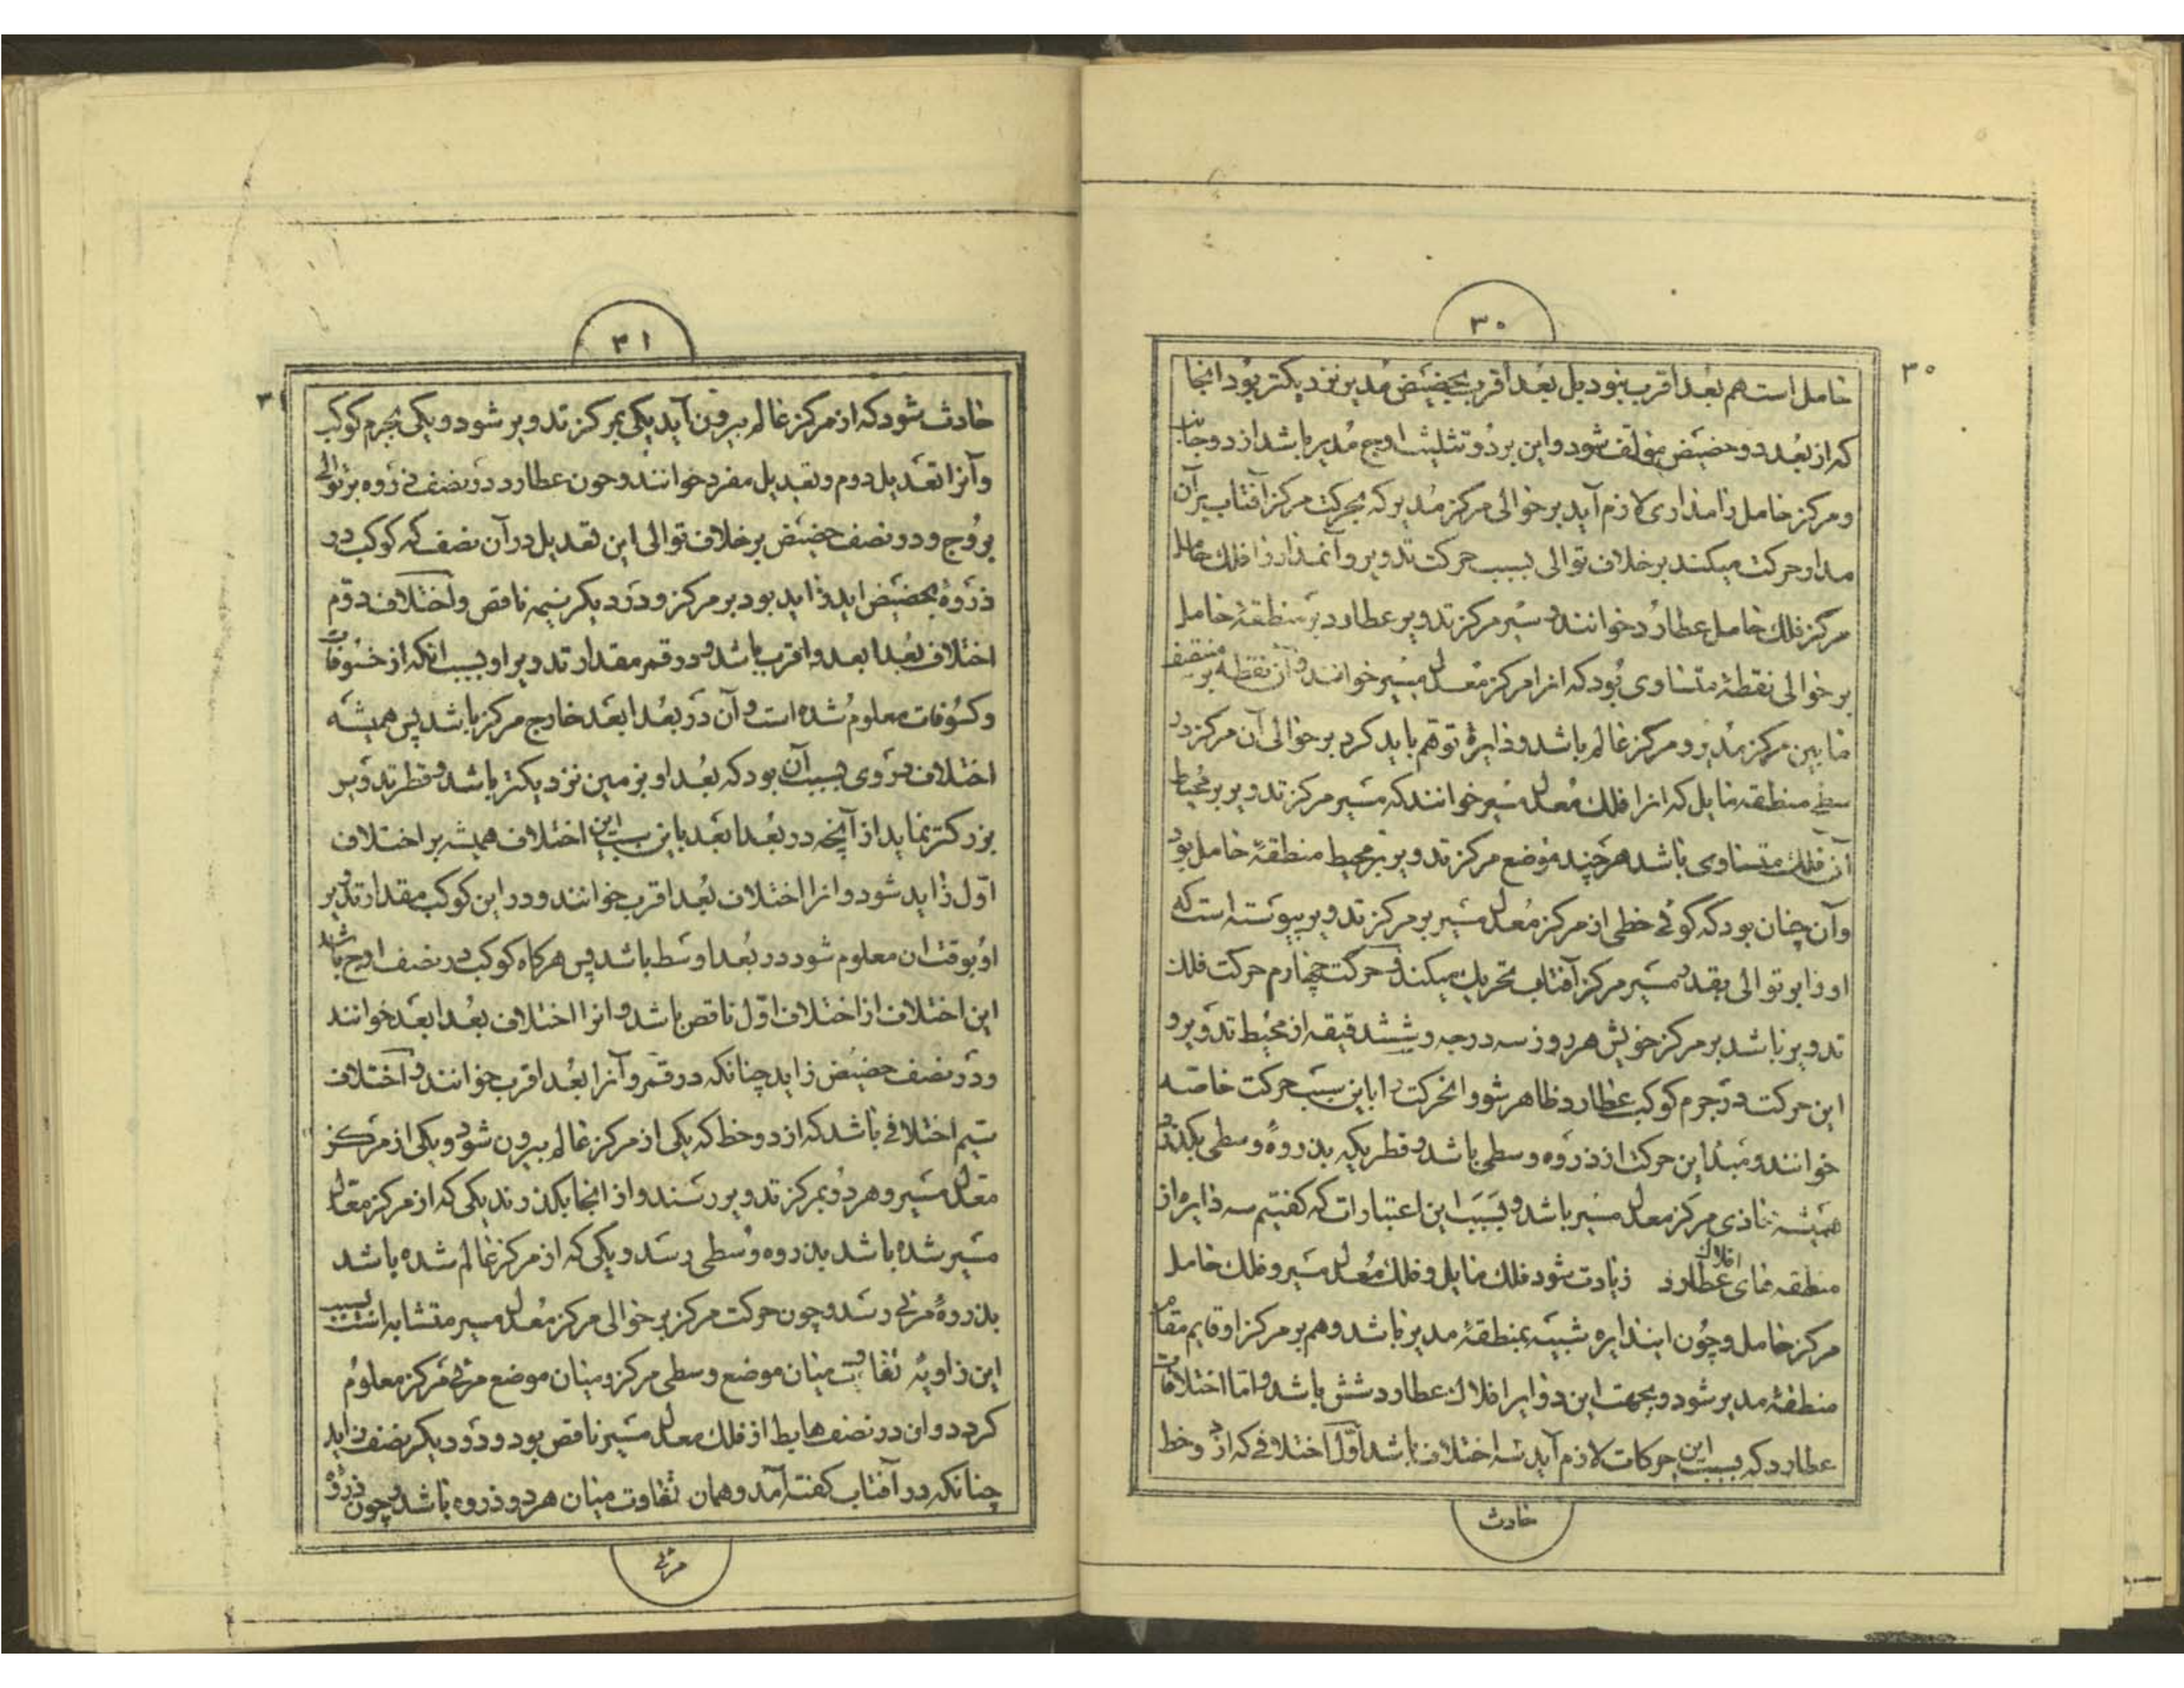 ۳۰
۳۰
حامل است هم بعد اقرب نبود بل بعد اقرب بحضیض مدیر نزدیکتر بود انجا
که از بعد دو حضیض مؤلف شود و این بر دو تثلیث اوج مدیر باشد از دو جانب
و مرکز حامل را مداری لازم آید بر حوالی مرکز مدیر که بحرکت مرکز آفتاب بر آن
مدار حرکت میکند بر خلاف توالی بسبب حرکت تدویر و آنمدار را فلک حامل
مرکز فلک حامل عطارد خوانند و سیر مرکز تدویر عطارد بر منطقهٔ حامل
بر حوالی نقطهٔ متساوی بود که انرا مرکز معدل مسیر خوانند و آن نقطه بر منتصف
مابین مرکز مدیر و مرکز عالم باشد و دایرهٔ توهم باید کرد بر حوالی آن مرکز در
سطح منطقه مایل که انرا فلک معدل مسیر خوانند که مسیر مرکز تدویر بر محیط
آن فلک متساوی باشد هر چند موضع مرکز تدویر بر محیط منطقهٔ حامل بود
وآن چنان بود که گوئی خطی از مرکز معدل مسیر بر مرکز تدویر پیوسته است که
او را بر توالی بقدر مسیر مرکز آفتاب تحریک میکند و حرکت چهارم حرکت فلک
تدویر باشد بر مرکز خویش هر روز سه درجه و شش دقیقه از محیط تدویر و
این حرکت در جرم کوکب عطارد ظاهر شود و انحرکت را باین سبب حرکت خاصه
خوانند و مبدأ این حرکت از ذروه وسطی باشد و قطریکه بذروهٔ وسطی بگذرد
همیشه محاذی مرکز معدل مسیر باشد و بسبب این اعتبارات که گفتیم سه دایره از
منطقه های افلاک عطارد زیادت شود فلک مایل و فلک معدل مسیر و فلک حامل
مرکز حامل و چون ایندایره شبیه بمنطقهٔ مدیر باشد و هم بر مرکز او قایم مقام
منطقهٔ مدیر شود و بجهت این دوایر افلاک عطارد شش باشد و اما اختلافات
عطارد که بسبب این حرکات لازم آید سه اختلاف باشد اول اختلافی که از دو خط
حادث
۳۱
۳۱
حادث شود که از مرکز عالم بیرون آید یکی بمرکز تدویر شود و یکی بجرم کوکب
وآنرا تعدیل دوم و تعدیل مفرد خوانند و چون عطارد در نصف ذروه بر توالی
بروج و در نصف حضیض بر خلاف توالی این تعدیل در آن نصف که کوکب در
ذروهٔ بحضیض اید زاید بود بر مرکز و در دیگر نیمه ناقص و اختلاف دوم
اختلاف بعد ابعد و اقرب باشد و در قمر مقدار تدویر او بسبب انکه از خسوفات
وکسوفات معلوم شده است و آن در بعد ابعد خارج مرکز باشد پس همیشه
اختلاف در وی بسبب آن بود که بعد او بزمین نزدیکتر باشد و قطر تدویر
بزرگتر نماید از آنچه در بعد ابعد باین سبب این اختلاف همیشه بر اختلاف
اول زاید شود و انرا اختلاف بعد اقرب خوانند و در این کوکب مقدار تدویر
او بوقت ان معلوم شود در بعد اوسط باشد پس هرگاه کوکب در نصف اوج باشد
این اختلاف از اختلاف اول ناقص باشد و انرا اختلاف بعد ابعد خوانند
ودر نصف حضیض زاید چنانکه در قمر و آنرا بعد اقرب خوانند و اختلاف
سیم اختلافی باشد که از دو خط که یکی از مرکز عالم بیرون شود و یکی از مرکز
معدل مسیر و هر دو بمرکز تدویر رسند و از انجا بگذرند یکی که از مرکز معدل
مسیر شده باشد بذروه وسطی رسد و یکی که از مرکز عالم شده باشد
بذروهٔ مرئی رسد و چون حرکت مرکز بر حوالی مرکز معدل مسیر متشابه است بسبب
این زاویهٔ تفاوت میان موضع وسطی مرکز و میان موضع مرئی مرکز معلوم
گردد و ان در نصف هابط از فلک معدل مسیر ناقص بود و در دیگر نصف زاید
چنانکه در آفتاب گفته آمد و همان تفاوت میان هر دو ذروه باشد و چون ذروهٔ
مرئی